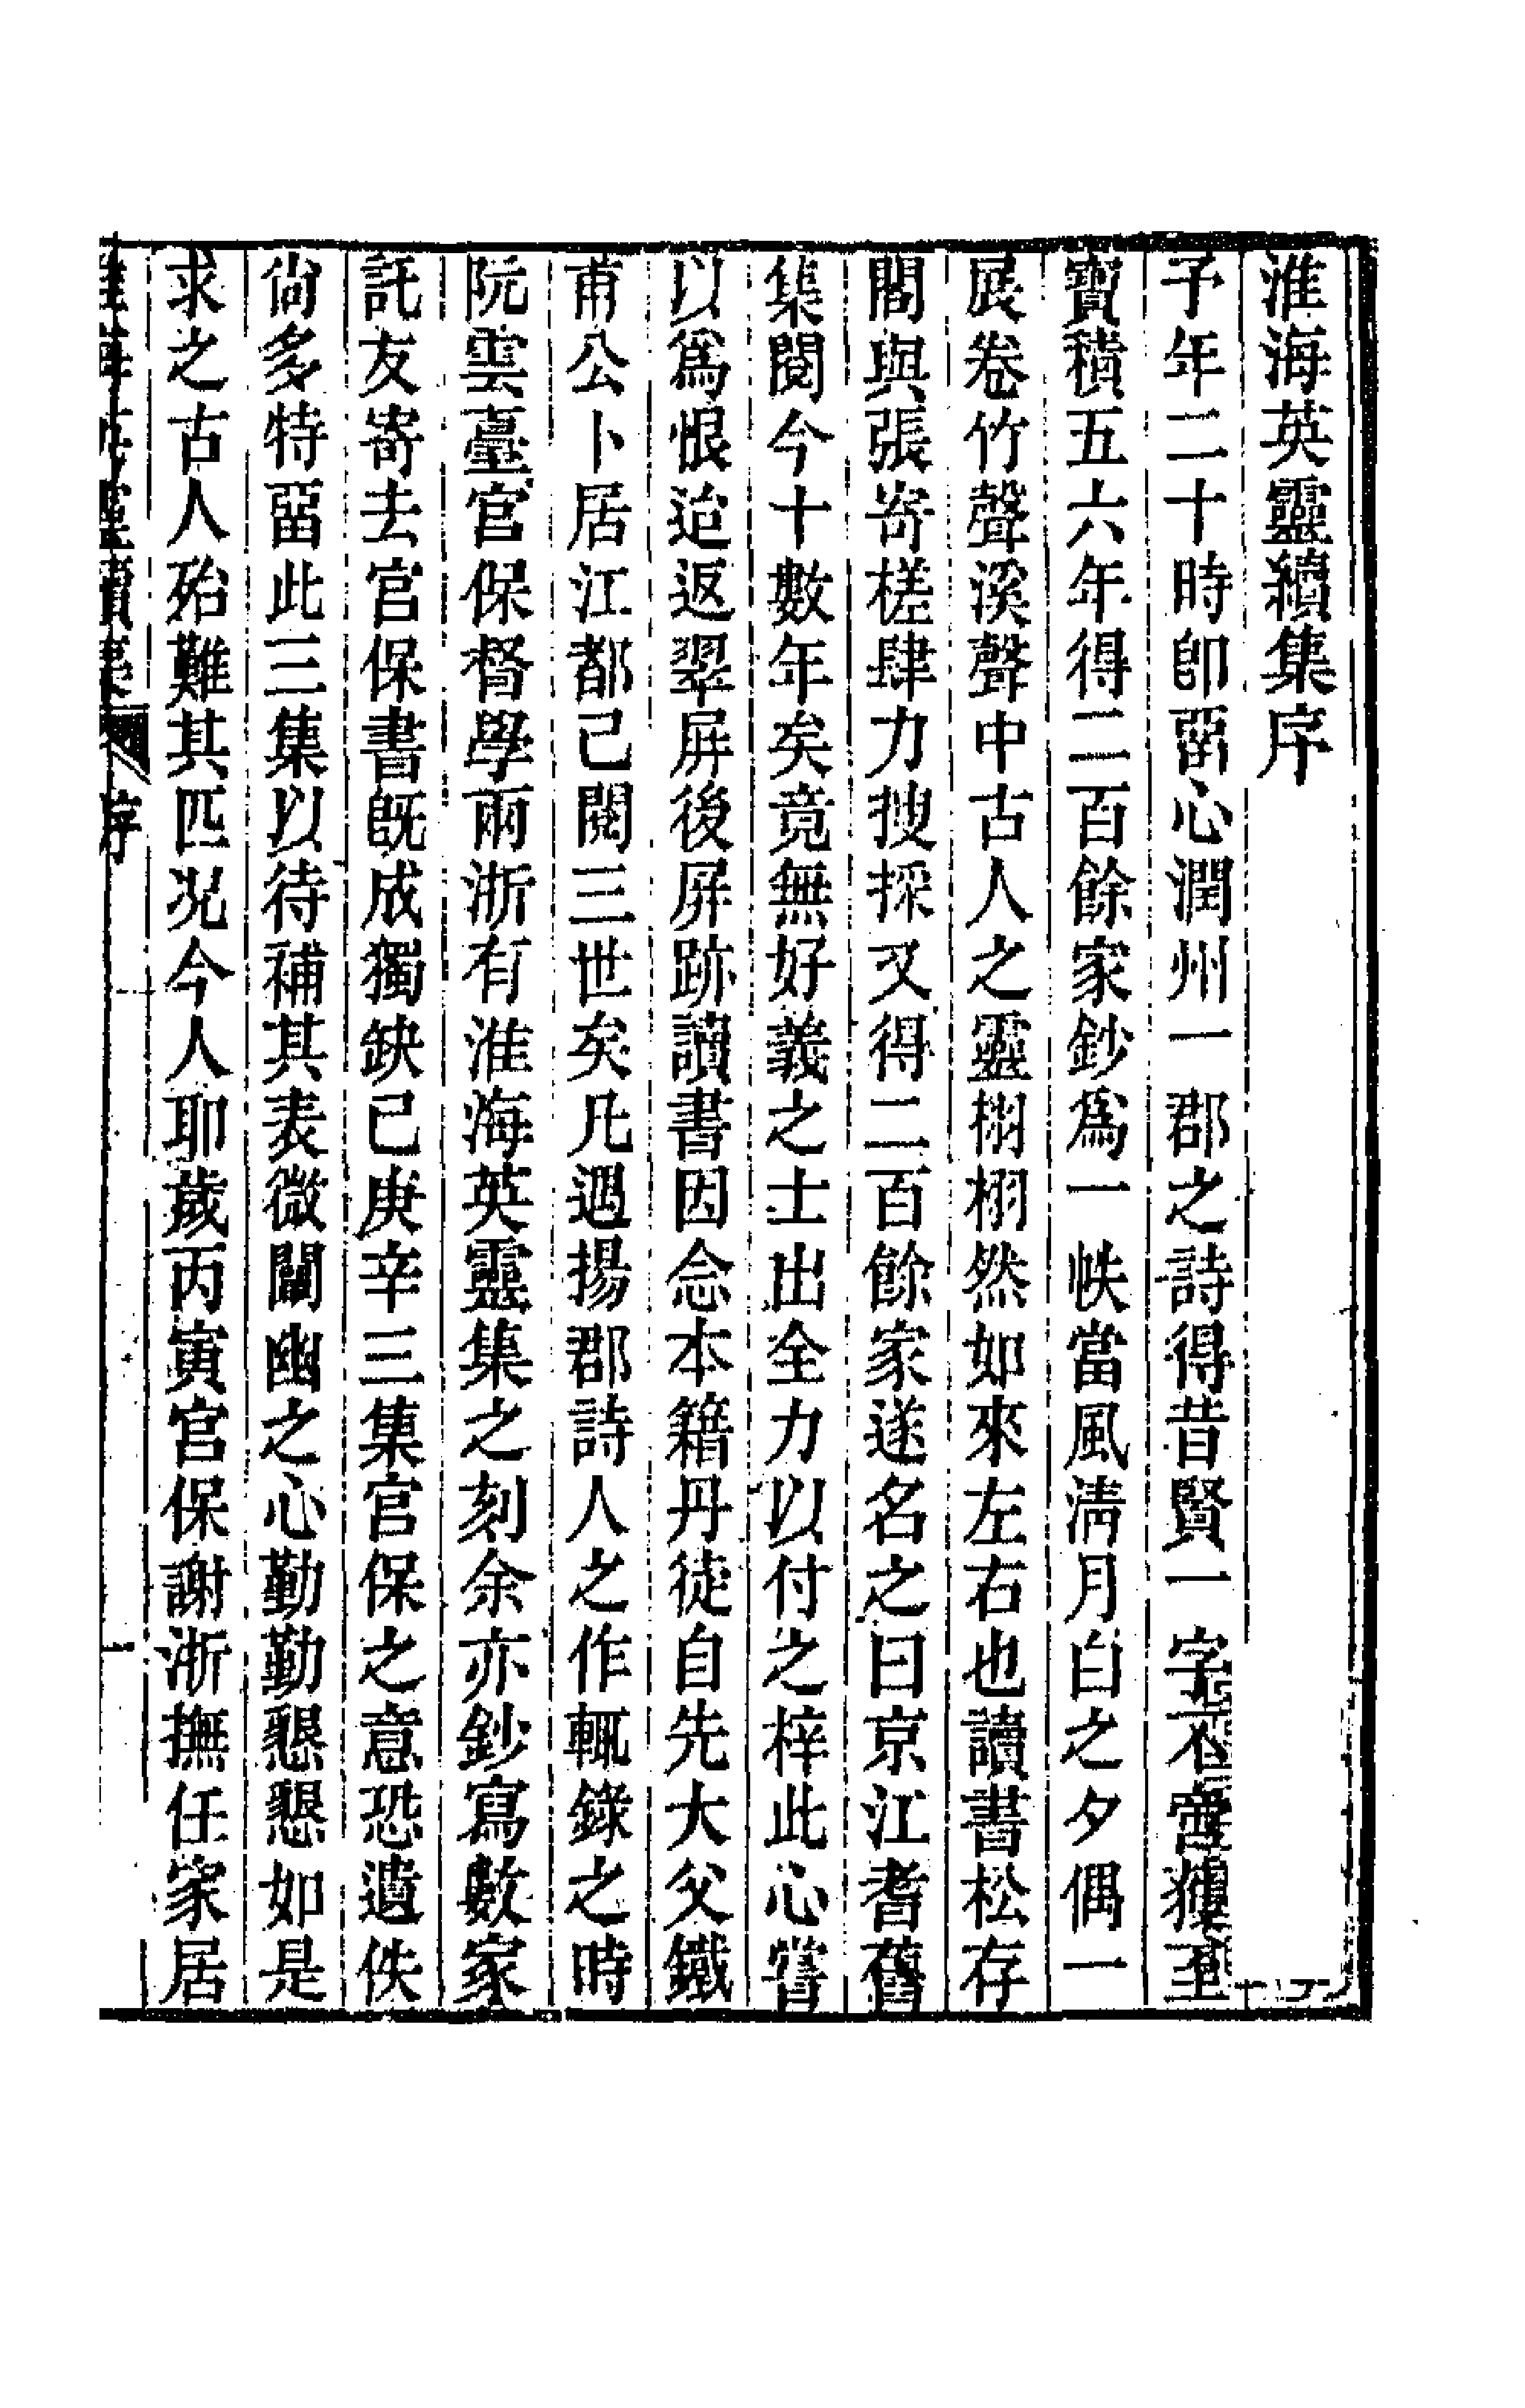 淮海英靈續集序
予年二十時卽畱心潤州一郡之詩得昔賢一字不啻獲至
寶積五六年得二百餘家鈔爲一帙當風淸月白之夕偶一
展卷竹聲溪聲中古人之靈栩栩然如來左右也讀書松存
閣與張寄槎肆力搜採又得二百餘家遂名之曰京江耆舊
集閱今十數年矣竟無好義之士出全力以付之梓此心嘗
以爲恨迨返翠屛後屛跡讀書因念本籍丹徒自先大父鐵
甫公卜居江都已閱三世矣凡遇揚郡詩人之作輒錄之時
阮雲臺官保督學兩浙有淮海英靈集之刻余亦鈔寫數家
託友寄去官保書旣成獨缺己庚辛三集官保之意恐遺佚
尙多特畱此三集以待補其表微闡幽之心勤勤懇懇如是
求之古人殆難其匹况今人耶歲丙寅官保謝浙撫任家居
淮海英靈續集 序 一